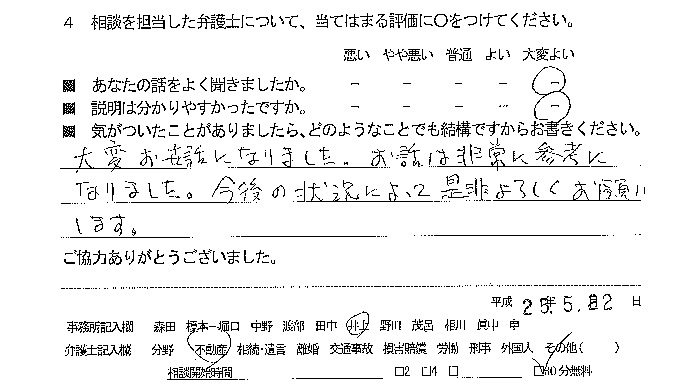 4 相談を担当した弁護士について、当てはまる評価に○をつけてください。
悪い やや悪い 普通 よい 大変よい
あなたの話をよく聞きましたか。 - - - - -
説明は分かりやすかったですか。 - - - - -
気がついたことがありましたら、どのようなことでも結構ですからお書きください。
大変お世話になりました。お話は非常に参考に
なりました。今後の状況によって是非よろしくお願い
します。
ご協力ありがとうございました。
平成 25年5. 22 日
事務所記入欄 森田 榎本 堀口 中野 渡部 田中 井上 野川 茂呂 相川 眞中 卓
弁護士記入欄 分野 不動産 相続・遺言 離婚 交通事故 損害賠償 労働 刑事 外国人 その他( )
相談開始時間 □2 □4 □ □30分無料